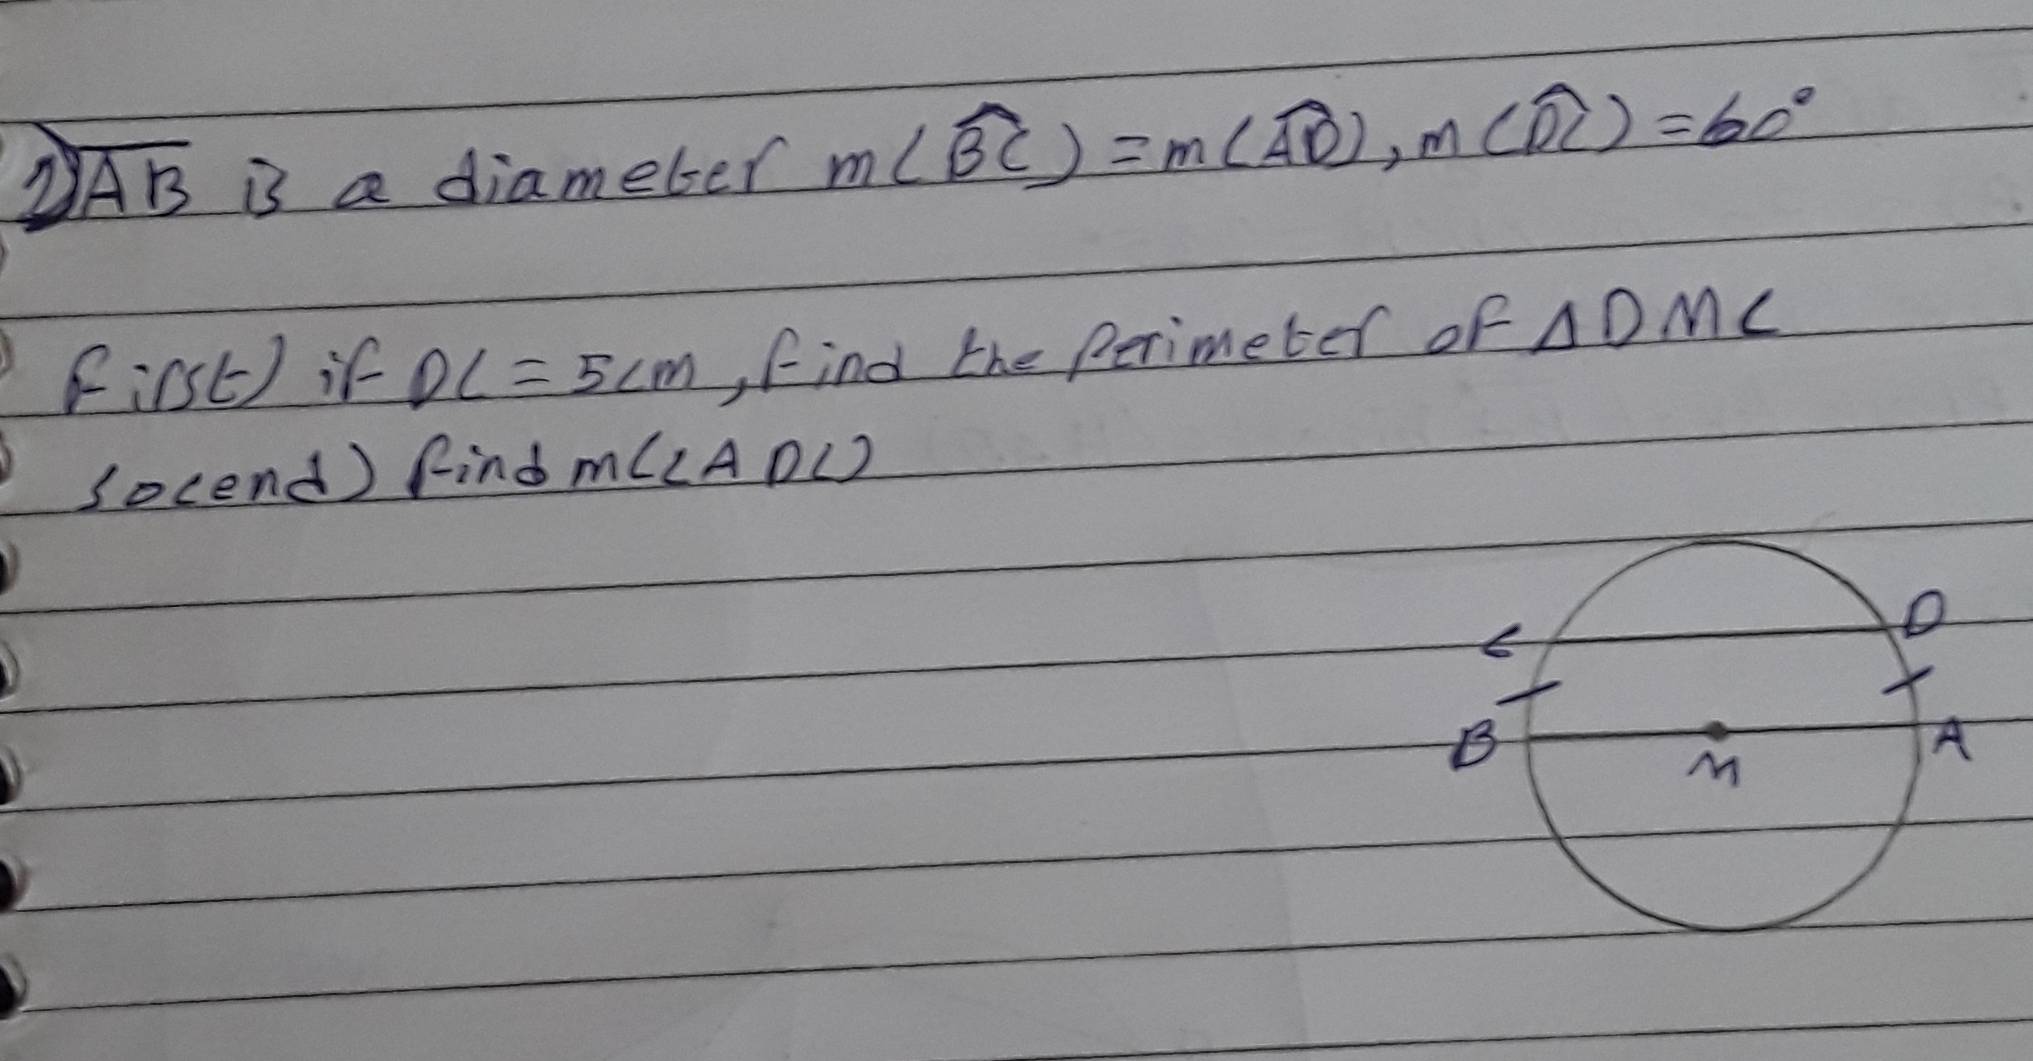 1) AB is a diameter m(BC) = m(AD), m(DC) = 60°
First) if DC = 5cm, find the Perimeter of ΔDMC
Socend) find m(∠ADC)
C D
B M A